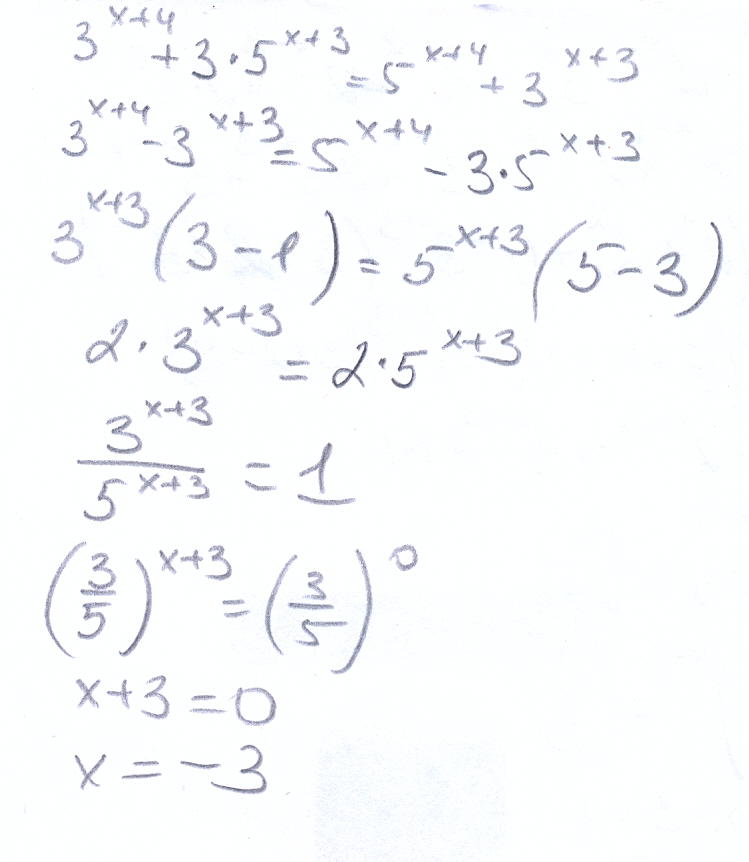 3^{x+4} + 3·5^{x+3} = 5^{x+4} + 3^{x+3}
3^{x+4} - 3^{x+3} = 5^{x+4} - 3·5^{x+3}
3^{x+3}(3-1) = 5^{x+3}(5-3)
2·3^{x+3} = 2·5^{x+3}
\frac{3^{x+3}}{5^{x+3}} = 1
(\frac{3}{5})^{x+3} = (\frac{3}{5})^{0}
x+3=0
x=-3